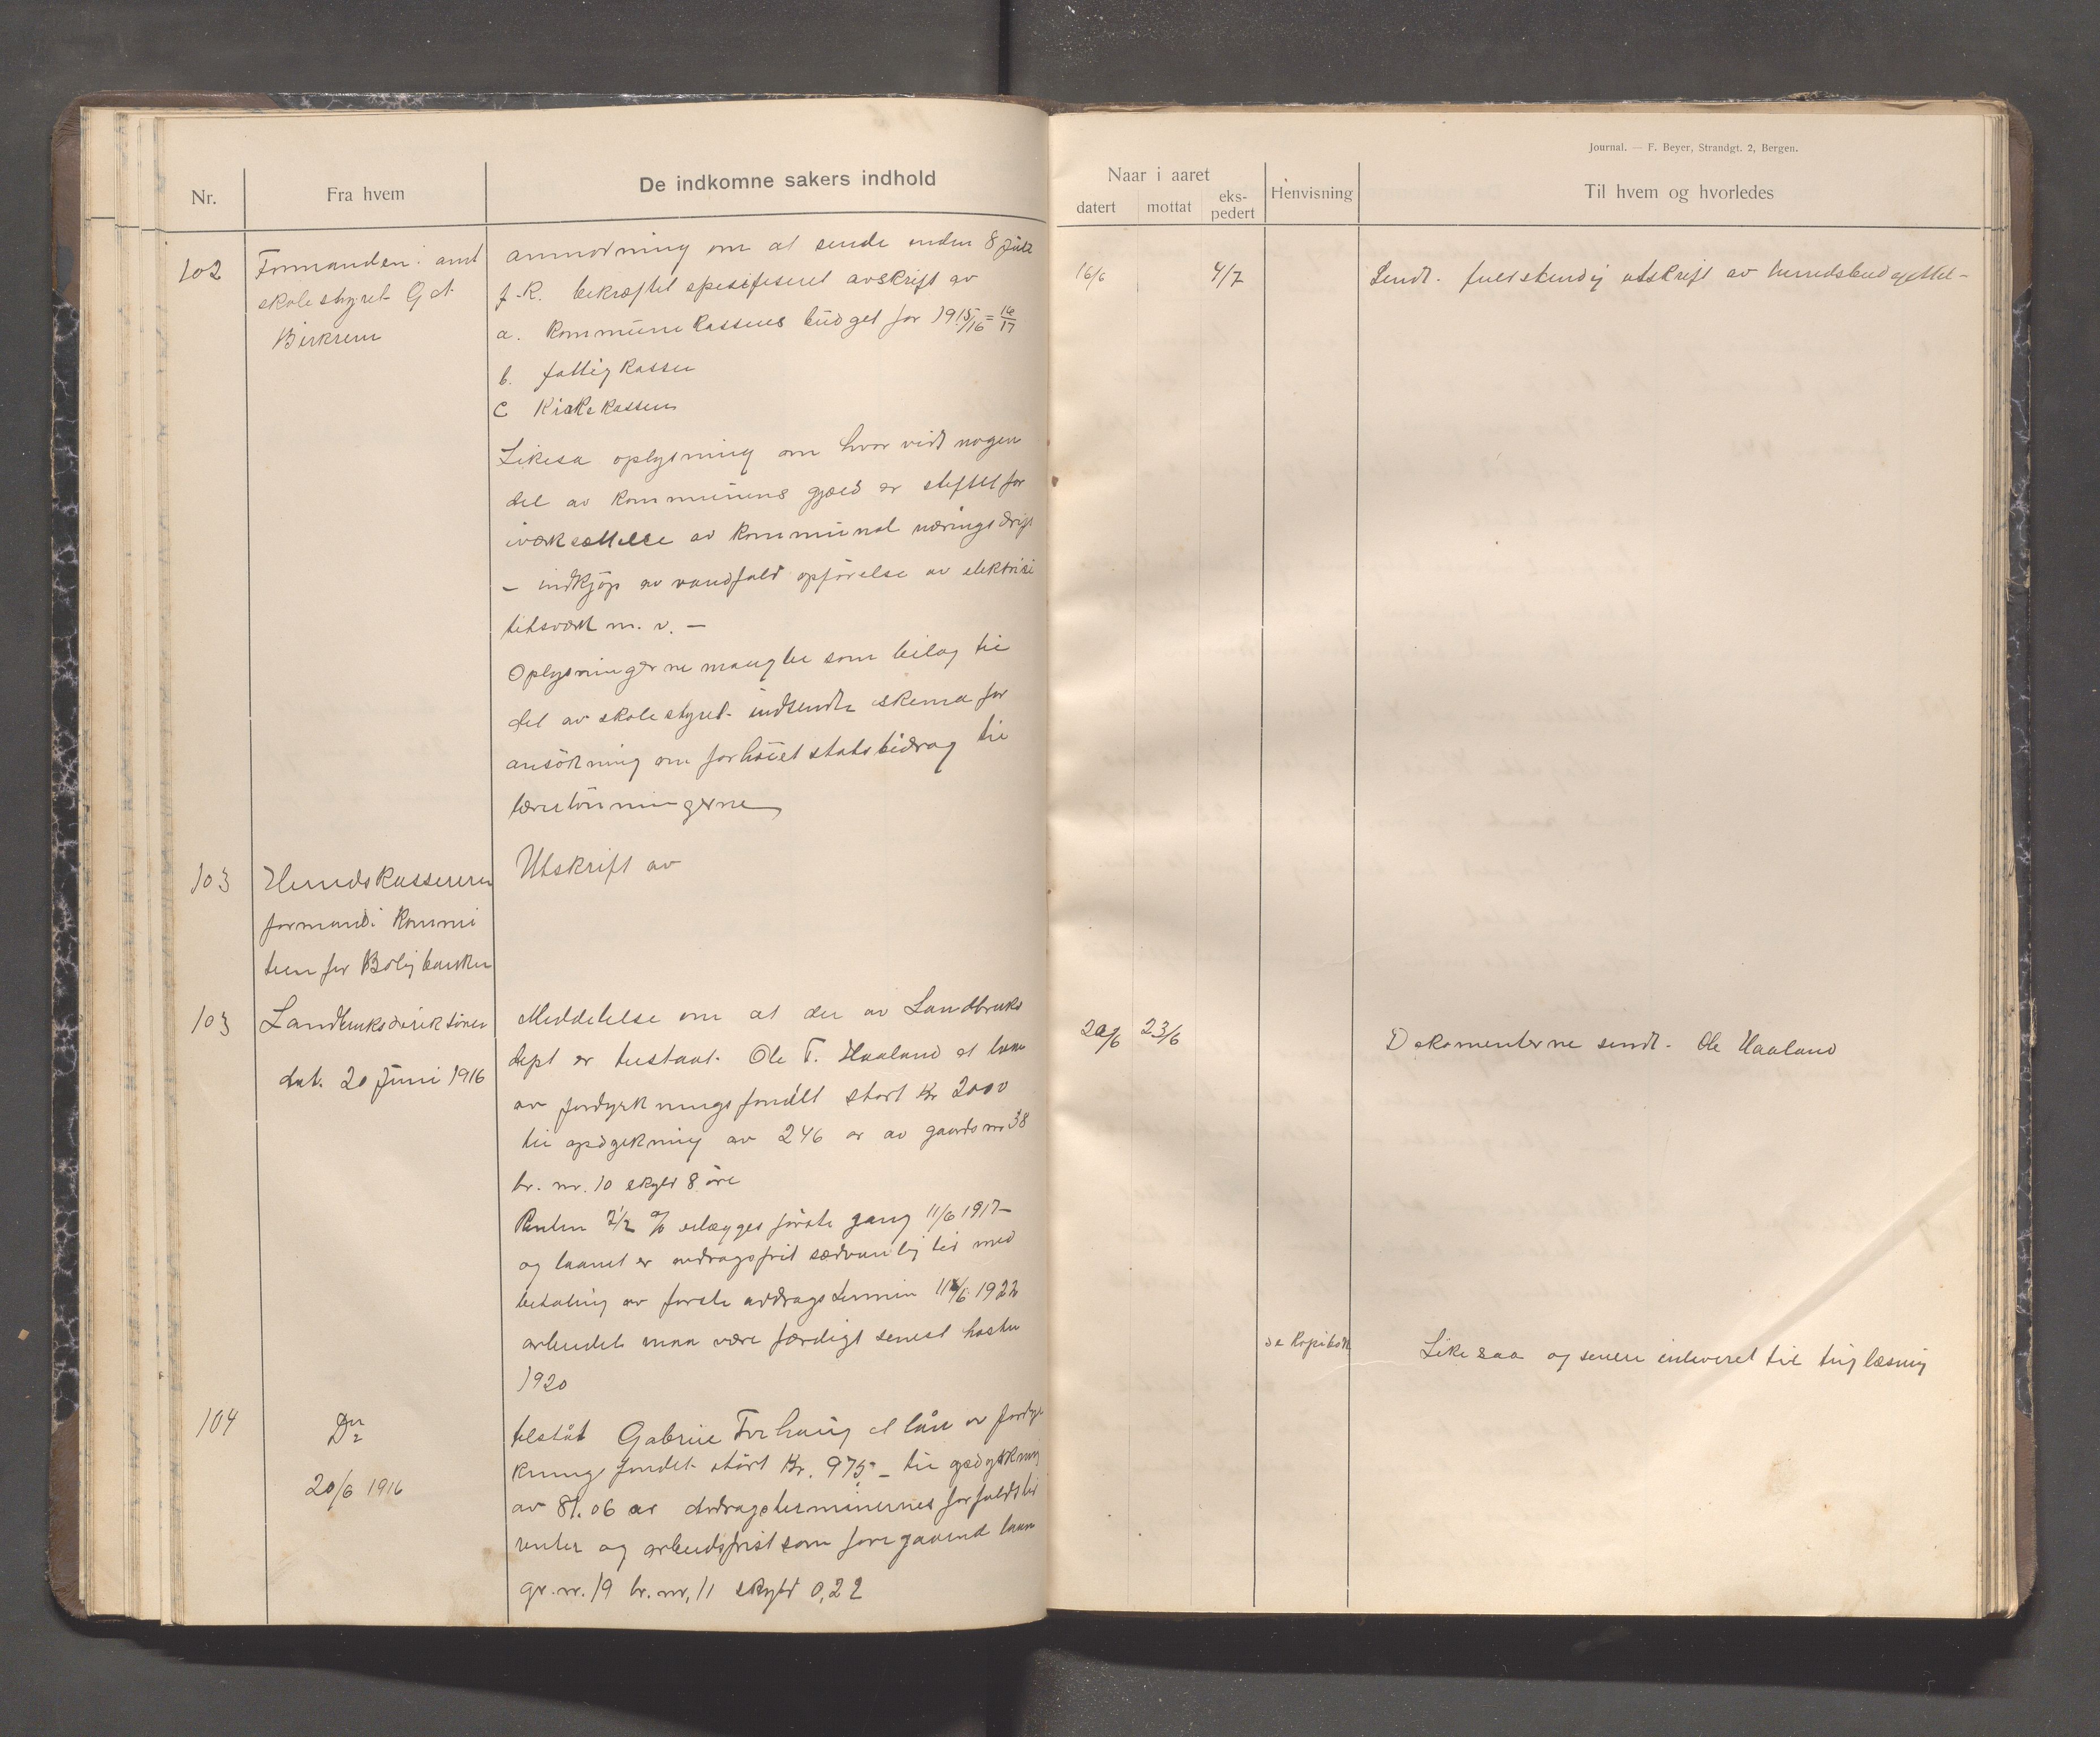 Journal. — F. Beyer, Strandgt. 2, Bergen.
Nr.
Fra hvem
De indkomne sakers indhold
Naar i aaret
datert
mottat
eks-
pedert
Henvisning
Til hvem og hvorledes
102
Formanden i amt
skolestyret G at
Birkrem
anmodning om at sende inden 8 Juli
f. K. bekræftet spesifiseret avskrift av
a. Kommunekassens budget for 1915/16 = 16/17
b. fattigkassen
c Kirkekassen
Likesa oplysning om hvorvidt nogen
del av kommunens gjæld er stiftet for
iværksættelse av kommunal næringsdrift
- indkjøp av vandfald opførelse av elektrisi
titsværk m. v. -
Oplysningerne mangler som bilag til
det av skolestyret indsendte skema for
ansökning om forhöiet statsbidrag til
lærerlönningerne
16/6
4/7
Sendt fuldstendig utskrift av herredsbudgettet -
103
Herredskassereren
formand i Kommi
teen for Boligbanken
Utskrift av
103
Landbruksdirektören
dat. 20 Juni 1916
Meddelelse om at der av Landbruks
dept er tilstaat Ole T. Haaland et laan
av jorddyrkningsfondet stort Kr 2000
til opdyrkning av 246 ar av gaards nr 38
br. nr. 10 skyld 8 öre
Renten 2½ % erlægges förste gang 11/6 1917 -
og laanet er avdragsfrit sædvanlig tid med
betaling av förste avdragstermin 11/6 1922
arbeidet maa være færdigt senest hösten
1920
20/6
23/6
Dokumenterne sendt Ole Haaland
104
Do
20/6 1916
tilståt Gabriel Torhaug et lån av jorddyr
kningsfondet stört Kr. 975 - til opdyrkning
av 81.06 ar Avdragsterminernes forfaldstid
renter og arbeidsfrist som foregaaend laan
gr. nr. 19 br. nr. 11 skyld 0,22
se Kopibok
Likesaa og senere inleveret til tinglæsning